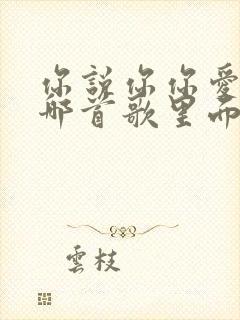 你說你你愛
那首歌里而
雲枝